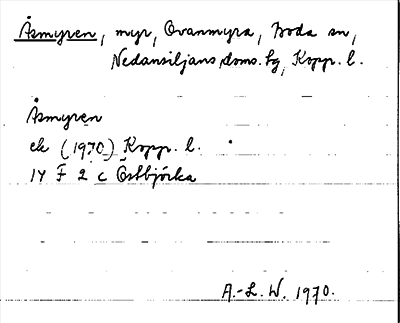 Åsmyren, myr, Ovanmyra, Boda sn,
Nedansiljans doms. hg, Kopp. l.
Åsmyren
ek (1970) Kopp. l.
14 F 2 c Östbjörka
A.-L. W. 1970.